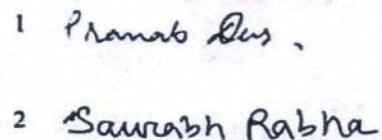 1 Pranab Das.
2 Saurabh Rabha